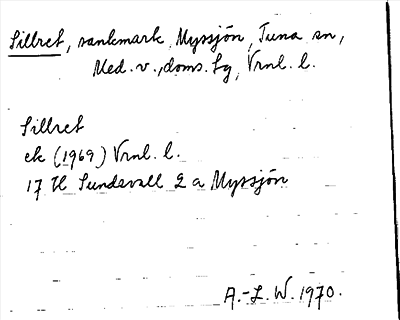 Sillret, sankmark, Myssjön, Tuna sn,
Med. v., doms. lg, Vrnl. l.
Sillret
ek (1969) Vrnl. l.
17 H Sundsvall 2 a Myssjön
A.-L. W. 1970.